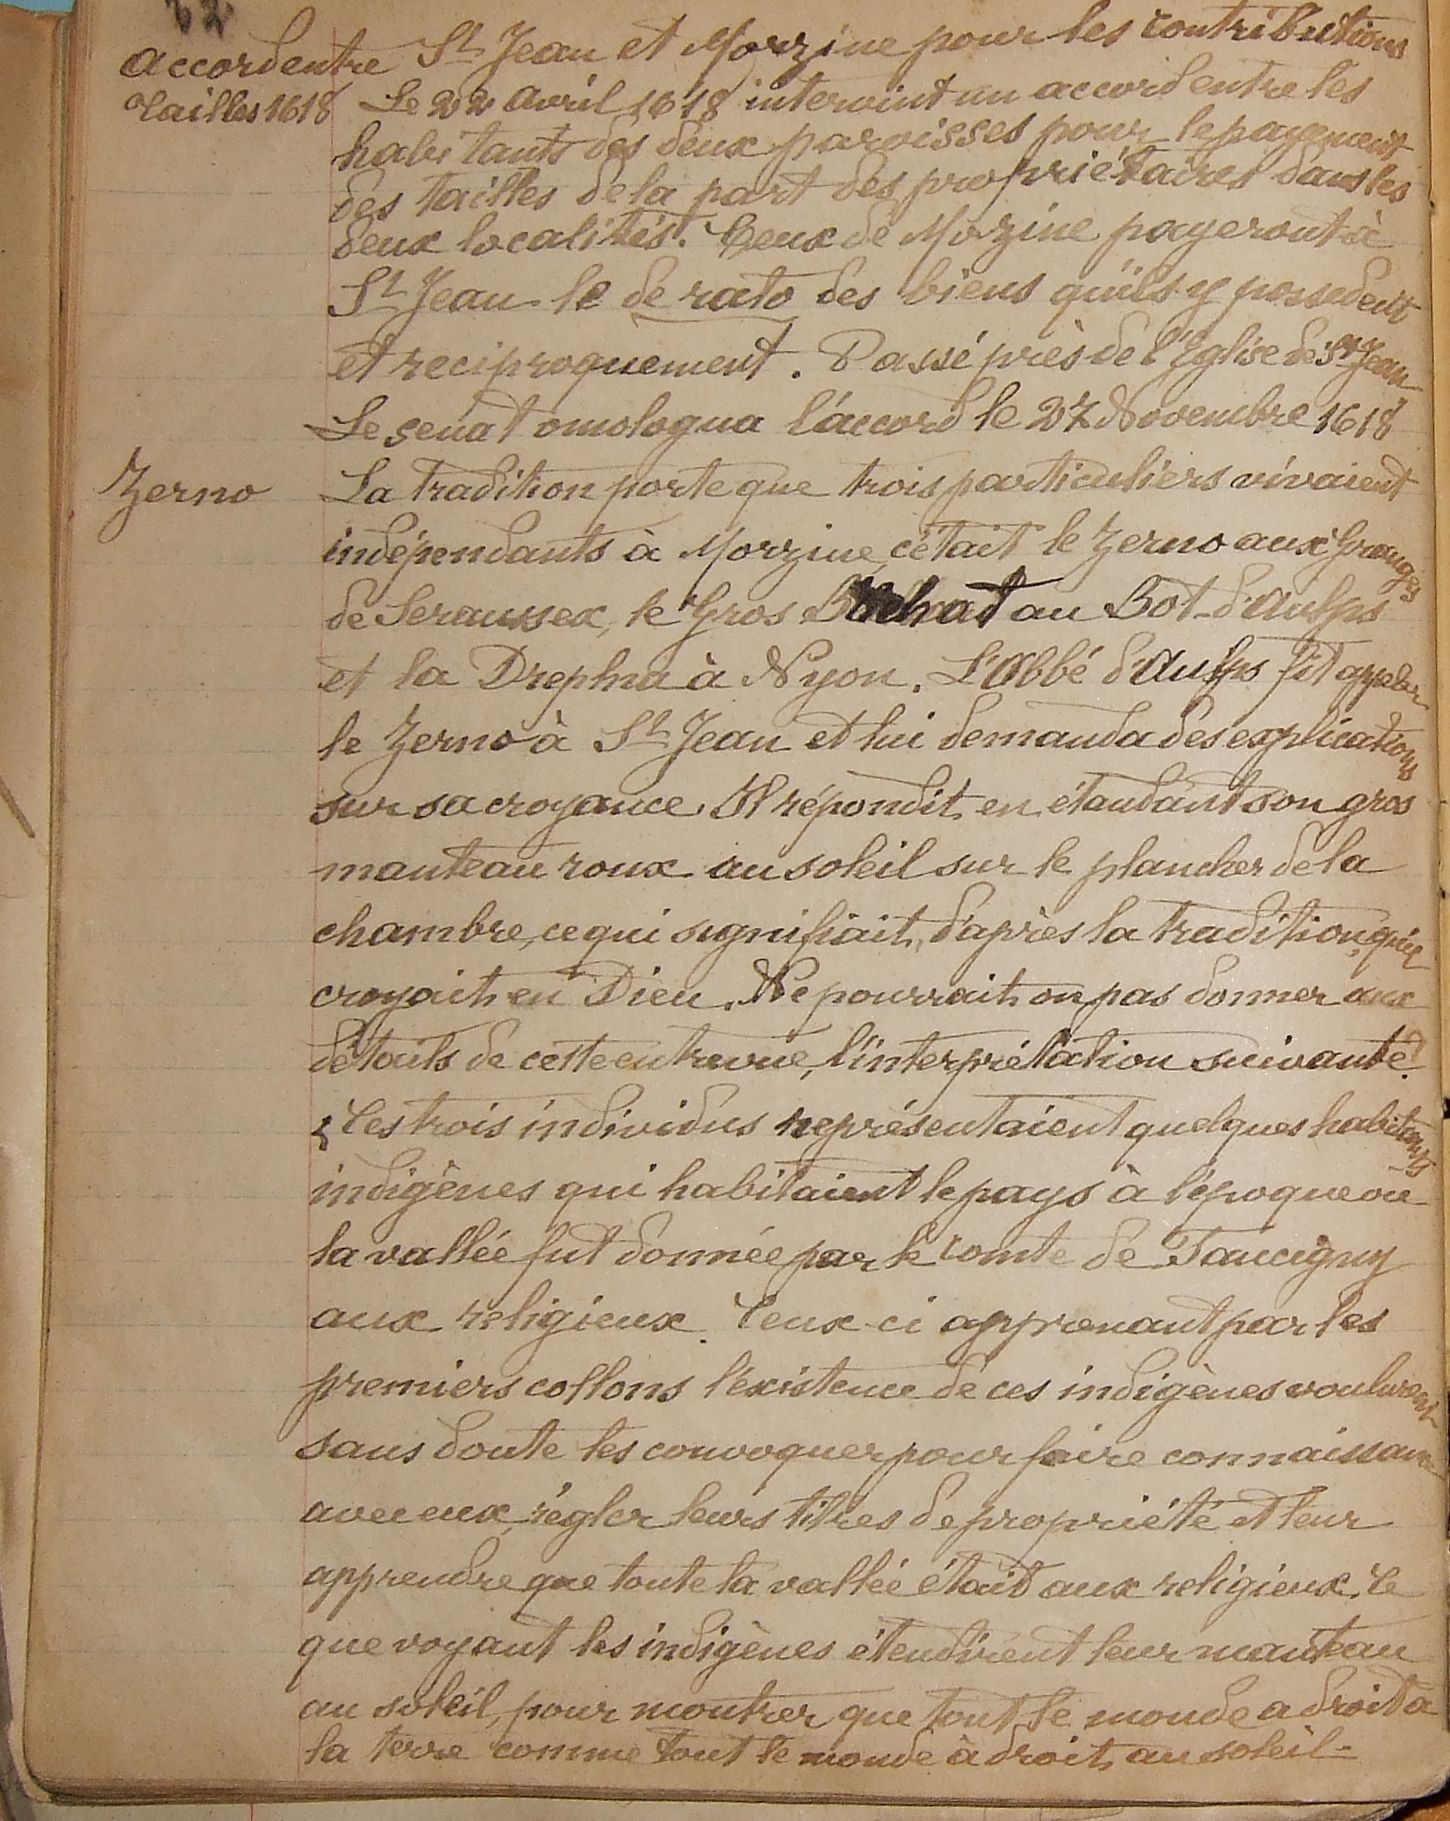 82
accord entre St Jean et Morzine pour les contributions
tailles 1618 Le 22 avril 1618 intervint un accord entre les
habitants des deux paroisses pour le payement
des tailles de la part des propriétaires dans les
deux localités. Ceux de Morzine payeront à
St Jean le de rato des biens qu'ils y possedent
et reciproquement. Passé près de l'Eglise de St Jean
Le senat omologua l'accord le 27 Novembre 1618
Zerno La tradition porte que trois particuliers vivaient
indépendants à Morzine, c'était le Zerno aux Granges
de Seraussex, le Gros au Bot-d'Aulps
et la Drepha à Nyon. L'Abbé d'Aulps fit appeler
le Zerno à St Jean et lui demanda des explications
sur sa croyance. Il répondit en étandant son gros
manteau roux au soleil sur le plancher de la
chambre, ce qui signifiait, d'après la tradition, qu'il
croyait en Dieu. Ne pourrait on pas donner aux
détails de cette entrevue, l'interprétation suivante?
Ces trois individus représentaient quelques habitants
indigènes qui habitaient le pays à l'époque ou
la vallée fut donnée par le comte de Faucigny
aux religieux. Ceux-ci apprenant par les
premiers collons l'existence de ces indigènes voulurent
sans doute les convoquer pour faire connaissance
avec eux, régler leurs titres de propriété et leur
apprendre que toute la vallée était aux religieux. Ce
que voyant les indigènes étendirent leur manteau
au soleil, pour montrer que tout le monde a droit a
la terre comme tout le monde à droit au soleil-